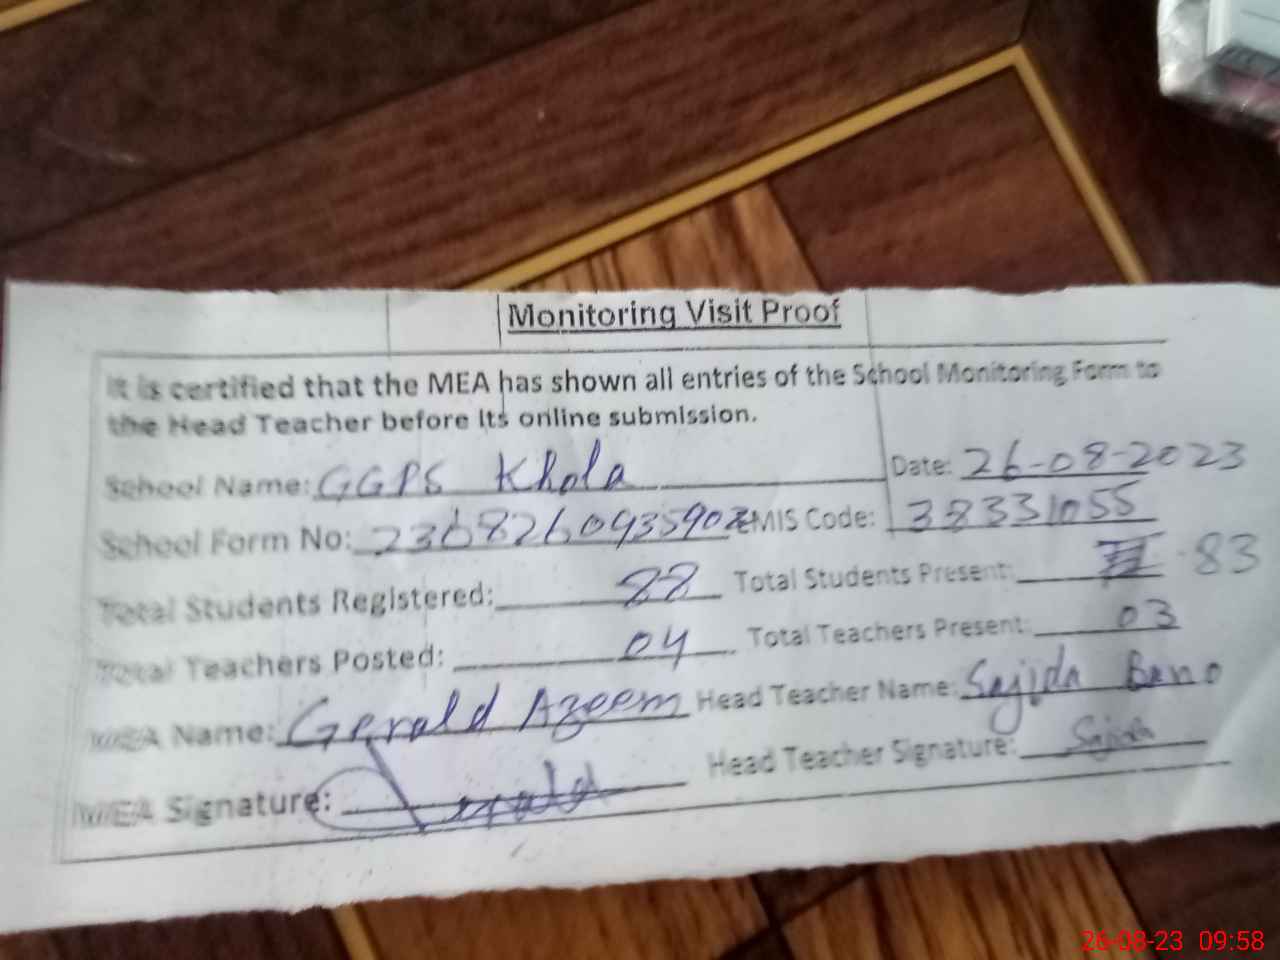 Monitoring Visit Proof
It is certified that the MEA has shown all entries of the School Monitoring Form to
the Head Teacher before its online submission.
School Name: GGPS Khola Date: 26-08-2023
School Form No: EMIS Code: 38331055
Total Students Registered: 88 Total Students Present: 83
Total Teachers Posted: 04 Total Teachers Present: 03
MEA Name: Gerald Azeem Head Teacher Name: Sajida Bano
MEA Signature: Gerald Head Teacher Signature: Sajida
26-08-23 09:58